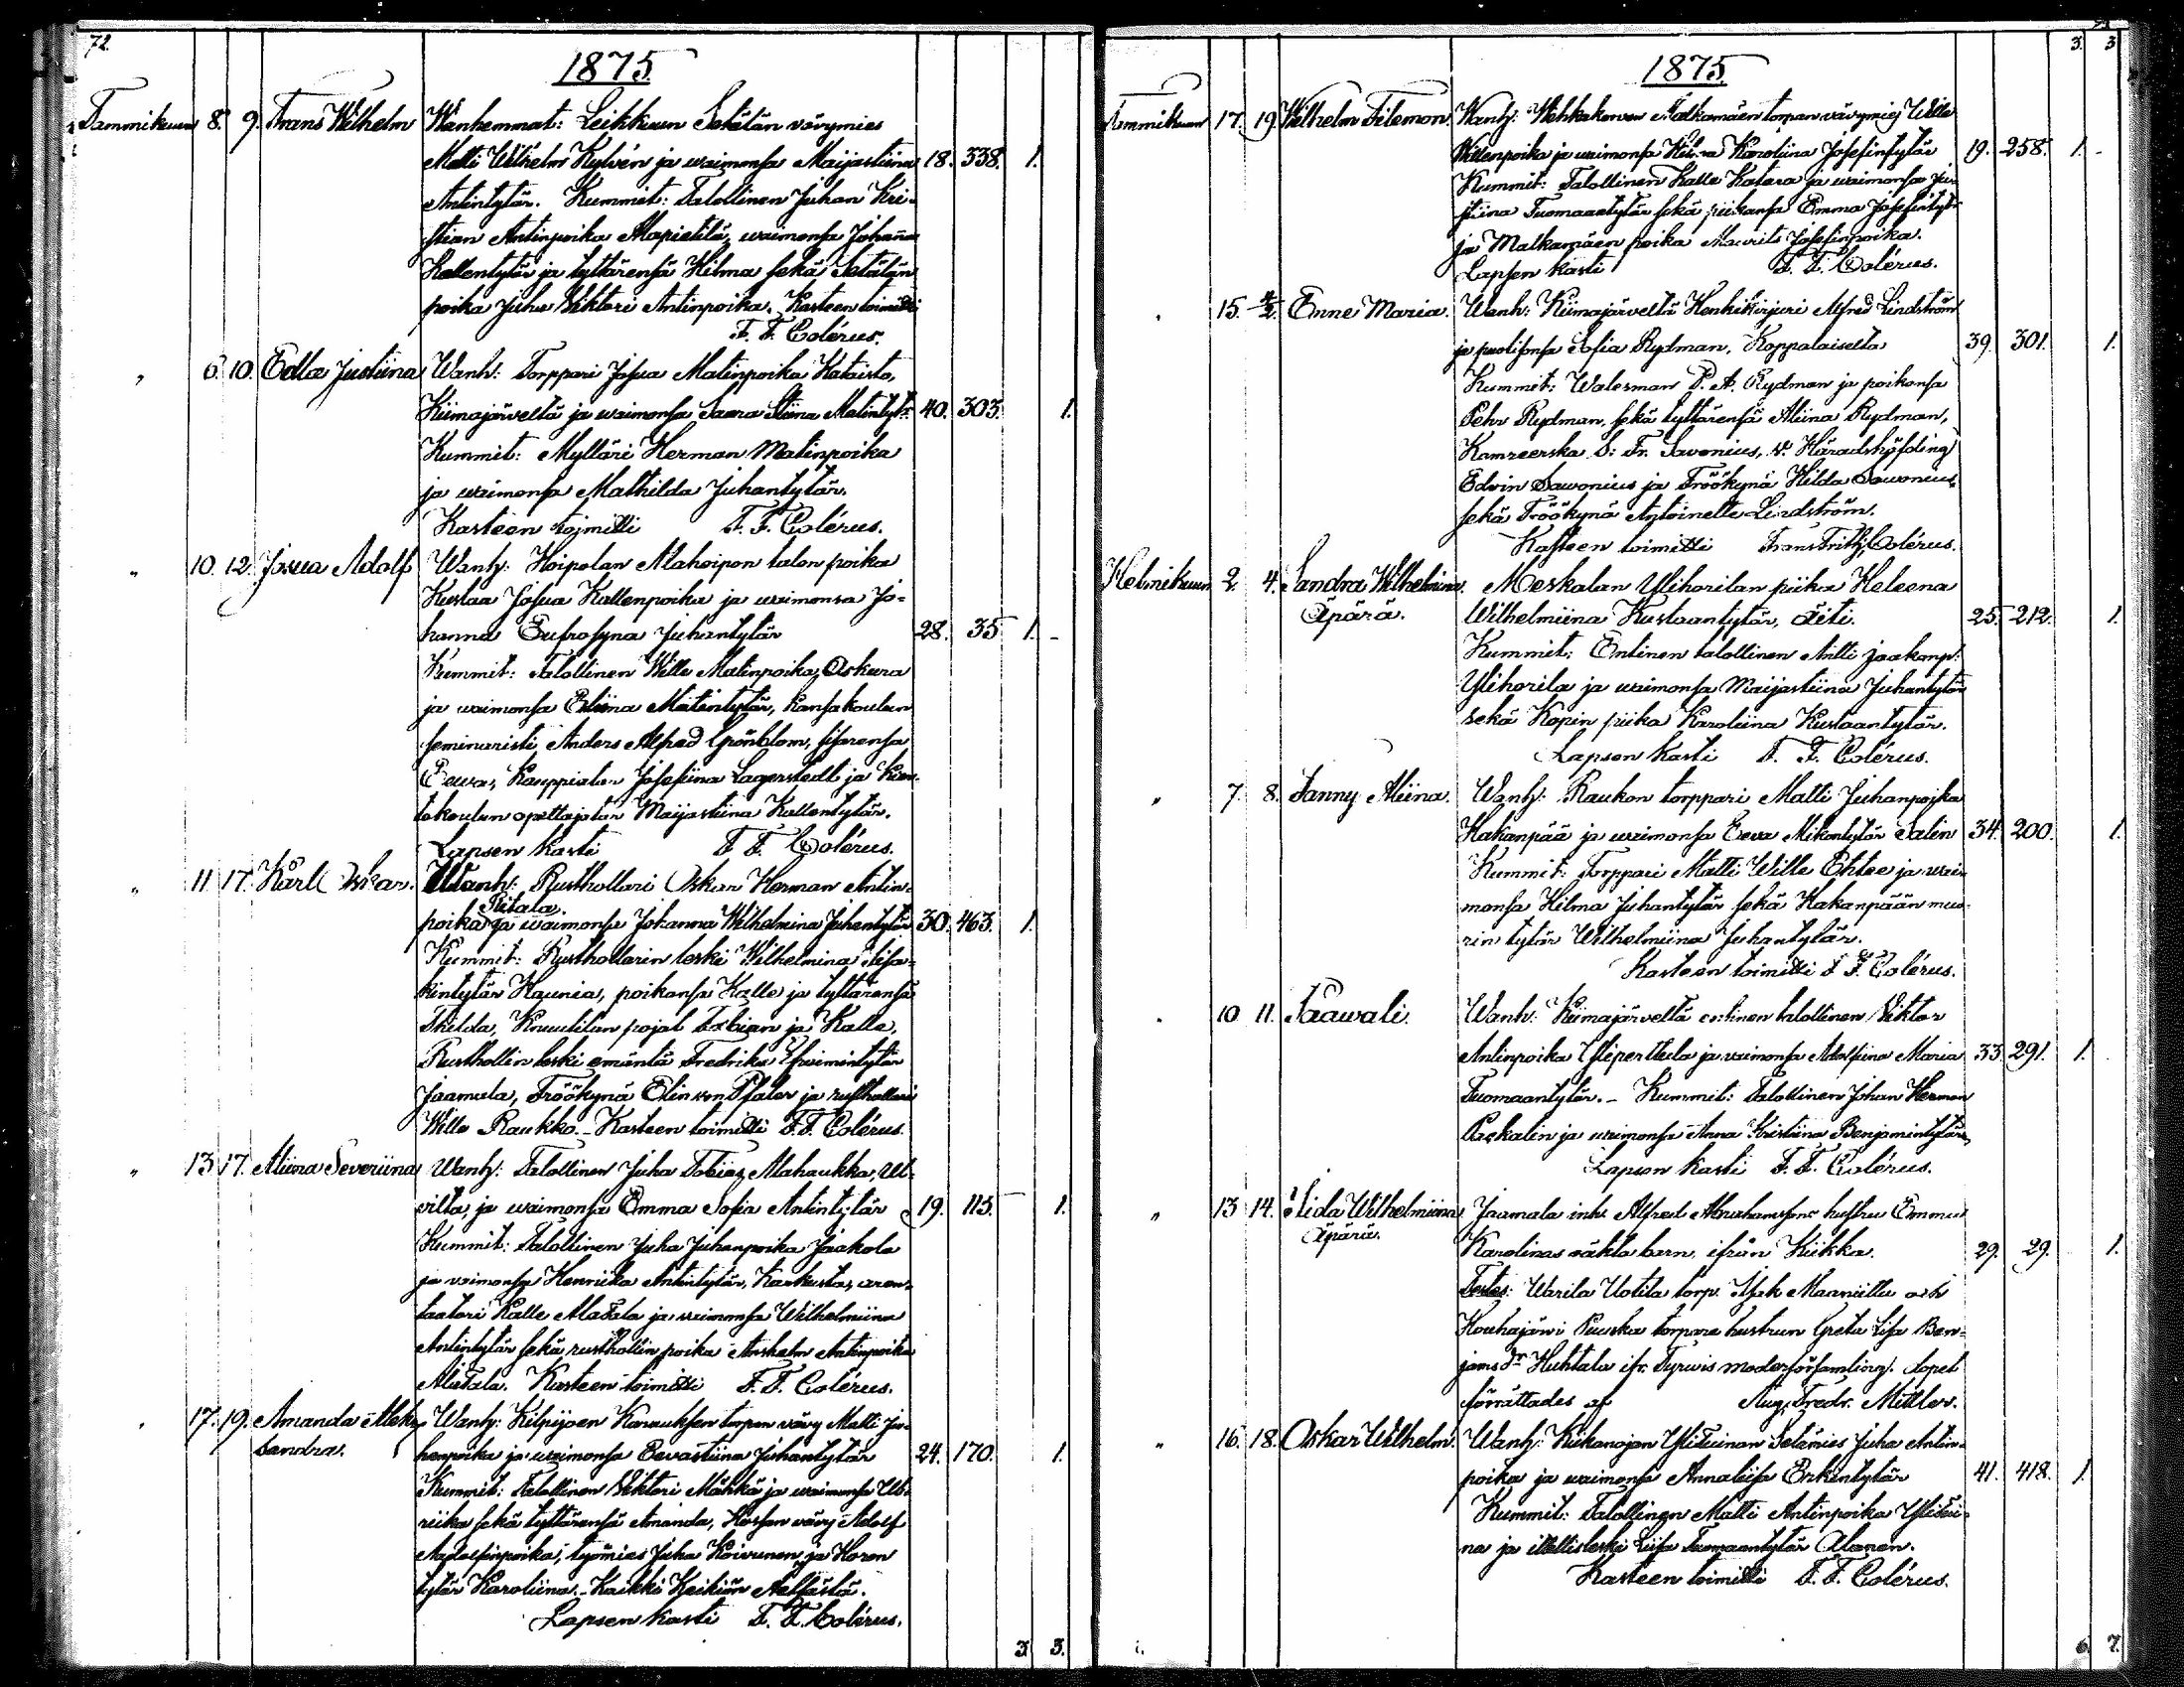 72.
1875.
Tammikuun 8. 9. Frans Wilhelm Wanhemmat: Leikkuun Setälän vävymies
Matti Wilhelm Kylvén ja waimonsa Maijastiina 18. 338. 1.
Antintytär. Kummit: Talollinen Juhan Kri-
stian Antinpoika Alapietilä, waimonsa Johanna
Kallentytär ja tyttärensä Hilma sekä Setälän
poika Juha Viktori Antinpoika. Kasteen toimitti
F. F. Colérus.
" 6. 10. Edla Justiina Wanh: Torppari Josua Matinpoika Kataisto,
Kiimajärveltä ja waimonsa Saara Stiina Matintytr 40. 303. 1.
Kummit: Mylläri Herman Matinpoika
ja waimonsa Mathilda Juhantytär.
Kasteen toimitti F. F. Colérus.
" 10. 12. Josua Adolf Wanh: Hoipolan Alahoipon talon poika
Kustaa Josua Kallenpoika ja waimonsa Jo-
hanna Eufrosyna Juhantytär 28. 35 1. -
Kummit: Talollinen Wille Matinpoika Oskara
ja waimonsa Eliina Matintytär, kansakoulun
seminaristi Anders Alfred Grönblom, sisarensa
Eewa, Kauppiatar Josefiina Lagerstedt ja Kier-
tokoulun opettajatar Maijastiina Kallentytär.
Lapsen kasti F. F. Colérus.
" 11. 17. Karl Oskar. Wanh: Rusthollari Oskar Herman Antin-
Ritala.
poika ja waimonsa Johanna Wilhelmina Juhantytär 30. 463. 1.
Kummit: Rusthollarin leski Wilhelmina Iisa-
kintytär Kaunia, poikansa Kalle ja tyttärensä
Thilda, Knuutilan pojat Fabian ja Kalle,
Rusthollin leski emäntä Fredrika Efraimintytär
Jaamala, Fröökynä Elin von Pfaler ja rusthollari
Wille Raukko. - Kasteen toimitti F. F. Colérus.
" 13. 17. Aliina Severiina Wanh: Talollinen Juha Tobias Alahaukka, Ul-
vilta, ja waimonsa Emma Sofia Antintytär 19. 115. 1.
Kummit: Talollinen Juha Juhanpoika Jaakola
ja vaimonsa Henriika Antintytär, Karkusta, aren-
taatori Kalle Alatala ja waimonsa Wilhelmiina
Antintytär sekä rusthollin poika Anshelm Antinpoika
Alatala. Kasteen toimitti F. F. Colérus.
" 17. 19. Amanda Alek- Wanh: Kilpijoen Karauksen torpan vävy Matti Ju-
sandra. hanpoika ja waimonsa Eevastiina Juhantytär 24. 170. 1.
Kummit: Talollinen Viktori Mähkä ja waimonsa Ul-
riika sekä tyttärensä Amanda, vävy Adolf
Aadolfinpoika, työmies Juha Koivunen ja Horon
tytär Karoliina. - Kaikki Keikiän
Lapsen kasti F. F. Colérus.
3. 3.
3. 3
1875.
Tammikuun 17. 19. Wilhelm Filemon. Wanh: Matkamäen torpan vävymies Wille
Willenpoika ja waimonsa Karoliina Josefintytär 19. 258. 1. -
Kummit: Talollinen Kalle Katara ja waimonsa Ju-
stiina Tuomaantytär sekä piikansa Emma Josefintytr
ja Matkamäen poika Maurits Josefinpoika.
Lapsen kasti F. F. Colérus.
" 15. Enne Maria. Wanh: Kiimajärveltä Henkikirjuri Alfred Lindström
ja puolisonsa Sofia Rydman, Koppalaiselta 39. 301. 1.
Kummit: Walesman P. A. Rydman ja poikansa
Pehr Rydman, sekä tyttärensä Aliina Rydman,
Kamreerska S: Fr. Savonius, v. Häradshöfding
Edvin Sawonius ja Fröökynä Hilda Sawonius,
sekä Fröökynä Antoinette Lindström.
Kasteen toimitti Frans Frith. Colérus.
Helmikuun 2. 4. Sandra Wilhelmina. Meskalan Ylihorilan piika Heleena
Äpärä. Wilhelmiina Kustaantytär, äiti. 25. 212. 1.
Kummit: Entinen talollinen Antti Jaakonp:
Ylihorila ja waimonsa Maijastiina Juhantytär
sekä Kopin piika Karoliina Kustaantytär.
Lapsen kasti F. F. Colérus.
" 7. 8. Fanny Aliina. Wanh: Raukon torppari Matti Juhanpoika
Hakanpää ja waimonsa Eeva Mikontytär Salin 34. 200. 1.
Kummit: Torppari Matti Wille Ehtee ja wai-
monsa Hilma Juhantytär sekä Hakanpään muo-
rin tytär Wilhelmiina Juhantytär.
Kasteen toimitti F. F. Colérus.
" 10 11. Saawali. Wanh: Kiimajärveltä entinen talollinen Viktor
Antinpoika Yliperttula ja vaimonsa Adolfiina Maria 33. 291. 1.
Tuomaantytär. - Kummit: Talollinen Johan Herman
Paskalin ja waimonsa Anna Kristiina Benjamintytär
Lapsen kasti F. F. Colérus.
" 13 14. Iida Wilhelmiina Jaamala inh. Alfred Abrahamssons hustru Emma
Äpärä. Karolinas oäkta barn, ifrån Kiikka. 29. 29. 1.
Testes: Warila Uotila torp. Isak Maaniittu och
Houhajärvi Puuska torpare hustrun Greta Lisa Ben-
jams dr Huhtala ifr. Tyrvis moderförsamling. Dopet
förrättades af Aug. Fredr. Mittler.
" 16. 18. Oskar Wilhelm. Wanh: Kiikanojan Ylituinan Setämies Juha Antin-
poika ja waimonsa Annaliisa Erkintytär 41. 418. 1.
Kummit: Talollinen Matti Antinpoika Ylitui-
na ja itellisleski Liisa Tuomaantytär Alanen.
Kasteen toimitti F. F. Colérus.
6. 7.